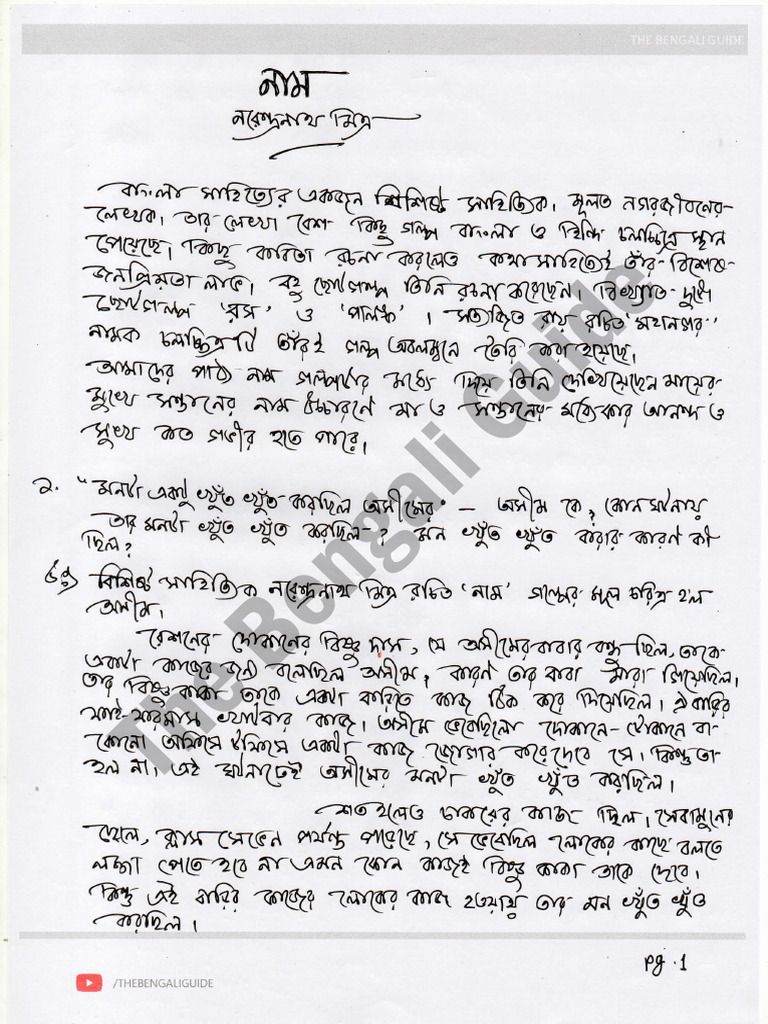 THE BENGALI GUIDE
নাম
নরেন্দ্রনাথ মিত্র
বাংলা সাহিত্যের একজন বিশিষ্ট সাহিত্যিক। মূলত নগরজীবনের
লেখক। তার লেখা বেশ কিছু গল্প বাংলা ও হিন্দি চলচ্চিত্রে স্থান
পেয়েছে। কিছু কবিতা রচনা করলেও কথাসাহিত্যেই তাঁর বিশেষ
জনপ্রিয়তা লাভ। বহু ছোটগল্প তিনি রচনা করেছেন। বিখ্যাত দুটি
ছোটগল্প 'রস' ও 'পালঙ্ক'। সত্যজিত রায় রচিত 'মহানগর'
নামক চলচ্চিত্রটি তাঁরই গল্প অবলম্বনে তৈরি করা হয়েছে।
আমাদের পাঠ্য নাম গল্পটির মধ্যে দিয়ে তিনি দেখিয়েছেন মায়ের
মুখে সন্তানের নাম উচ্চারণে মা ও সন্তানের মধ্যেকার আনন্দ ও
সুখ কত গভীর হতে পারে।
১. "মনটা একটু খুঁত খুঁত করছিল অসীমের" – অসীম কে? কোন ঘটনায়
তার মনটা খুঁত খুঁত করছিল? মন খুঁত খুঁত করার কারণ কী
ছিল?
উঃ) বিশিষ্ট সাহিত্যিক নরেন্দ্রনাথ মিত্র রচিত 'নাম' গল্পের মূল চরিত্র হল
অসীম।
রেশনের দোকানের বিষ্ণু দাস, সে অসীমের বাবার বন্ধু ছিল, তাকে
একটা কাজের জন্য বলেছিল অসীম, কারণ তার বাবা মারা গিয়েছিল।
তার বিষ্ণুকাকা তাকে একটা বাড়িতে কাজ ঠিক করে দিয়েছিল। ঐ বাড়ির
ফাই-ফরমাস খাটবার কাজ। অসীম ভেবেছিলো দোকানে-টোকানে বা
কোনো অফিসে টফিসে একটা কাজ জোগাড় করে দেবে সে। কিন্তু তা
হল না। এই ঘটনাতেই অসীমের মনটা খুঁত খুঁত করছিল।
শত হলেও চাকরের কাজ ছিল। সে বামুনের
ছেলে, ক্লাস সেভেন পর্যন্ত পড়েছে, সে ভেবেছিল লোকের কাছে বলতে
লজ্জা পেতে হবে না এমন কোন কাজই বিষ্ণু কাকা তাকে দেবে।
কিন্তু এই বাড়ির কাজের লোকের কাজ হওয়ায় তার মন খুঁত খুঁত
করছিল।
pg. 1
/THEBENGALIGUIDE
The Bengali Guide